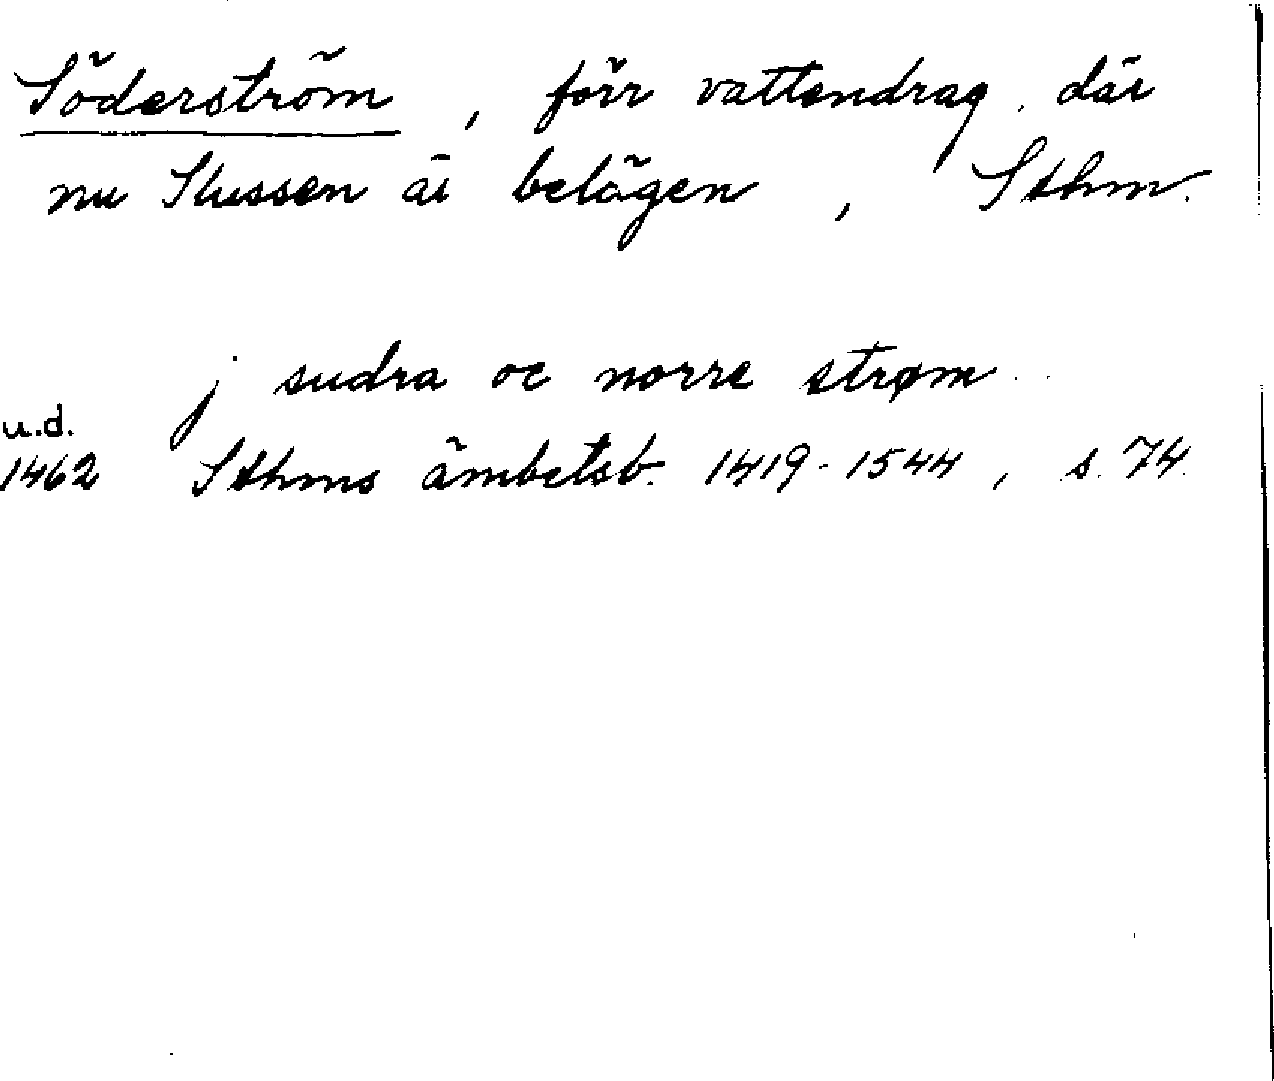 Söderström, förr vattendrag, där
nu Slussen är belägen, Sthm.
j sudra oc norre strøm
u.d.
1462 Sthms ämbetsb. 1419-1544, s. 74.